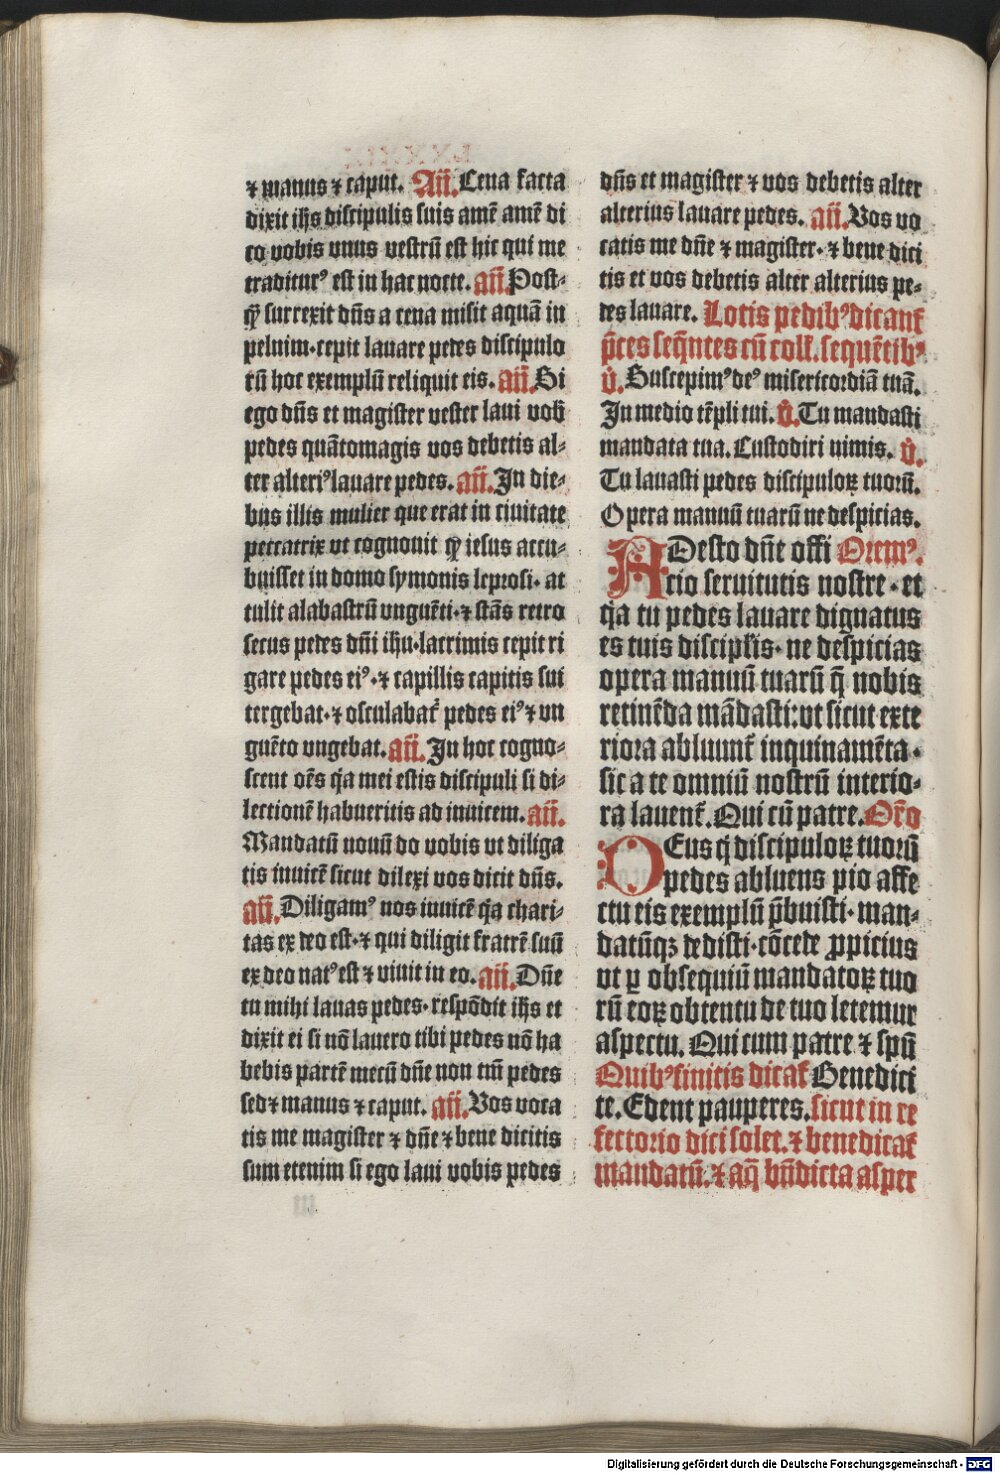 ⁊ manus ⁊ caput. Añ. Cena facta
dixit ihs discipulis suis amē amē di
co vobis vnus vestrū est hic qui me
traditurꝰ est in hac nocte. añ. Post-
ꝙ̄ surrexit dn̄s a cena misit aquā in
peluim·cepit lauare pedes discipulo
rū hoc exemplū reliquit eis. añ. Si
ego dn̄s et magister vester laui vob̄
pedes quātomagis vos debetis al-
ter alteriꝰ lauare pedes. añ. In die-
bus illis mulier que erat in ciuitate
peccatrix vt cognouit ꝙ̄ iesus accu-
buisset in domo symonis leprosi· at
tulit alabastrū vnguēti·⁊ stās retro
secus pedes dn̄i ihu·lacrimis cepit ri
gare pedes eiꝰ·⁊ capillis capitis sui
tergebat·⁊ osculabat᷑ pedes eiꝰ ⁊ vn
guēto vngebat. añ. In hoc cogno-
scent oēs q̇a mei estis discipuli si di-
lectionē habueritis ad inuicem. añ.
Mandatū nouū do vobis vt diliga
tis inuicē sicut dilexi vos dicit dn̄s.
añ. Diligamꝰ nos inuicē q̇a chari-
tas ex deo est·⁊ qui diligit fratrē suū
ex deo natꝰ est ⁊ viuit in eo. añ. Dn̄e
tu mihi lauas pedes· respōdit ihs et
dixit ei si nō lauero tibi pedes nō ha
bebis partē mecū dn̄e non tm̄ pedes
sed ⁊ manus ⁊ caput. añ. Vos voca
tis me magister ⁊ dn̄e ⁊ bene dicitis
sum etenim si ego laui vobis pedes
dn̄s et magister ⁊ vos debetis alter
alterius lauare pedes. añ. Vos vo
catis me dn̄e ⁊ magister· ⁊ bene dici
tis et vos debetis alter alterius pe-
des lauare. Lotis pedibꝰ dicant᷑
p̄ces seq̄ntes cū coll. sequētibꝰ
v̇. Suscepimꝰ deꝰ misericordiā tuā.
In medio tēpli tui. v̇. Tu mandasti
mandata tua. Custodiri nimis. v̇.
Tu lauasti pedes discipuloꝝ tuorū.
Opera manuū tuarū ne despicias.
ADesto dn̄e offi Oremꝰ.
cio seruitutis nostre· et
q̇a tu pedes lauare dignatus
es tuis discipl̄is· ne despicias
opera manuū tuarū q̄ nobis
retinēda mādasti: vt sicut exte
riora abluunt᷑ inquinamēta·
sic a te omniū nostrū interio-
ra lauent᷑. Qui cū patre. Or̄o
DEus cꝰ discipuloꝝ tuorū
pedes abluens pio affe
ctu eis exemplū p̄buisti· man-
datūqꝫ dedisti·cōcede ꝓpicius
vt ꝑ obsequiū mandatoꝝ tuo
rū eoꝝ obtentu de tuo letemur
aspectu. Qui cum patre ⁊ spū
Quibꝰ finitis dicat᷑ Benedici
te. Edent pauperes. sicut in re
fectorio dici solet. ⁊ benedicat᷑
mandatū. ⁊ aq̄ bn̄dicta asper
Digitalisierung gefördert durch die Deutsche Forschungsgemeinschaft - DFG